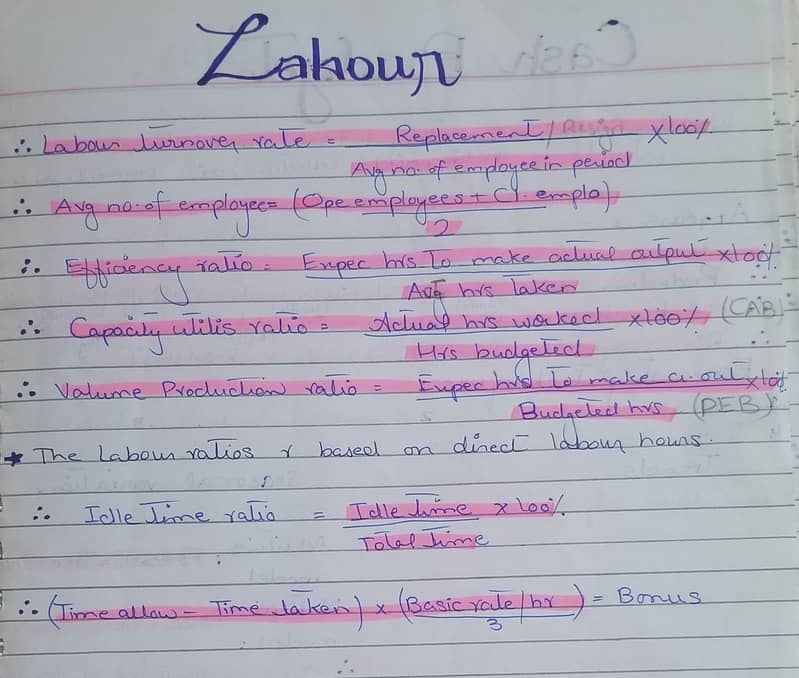 Labour
∴ Labour Turnover rate = Replacement / Resign x100%
Avg no. of employee in period
∴ Avg no. of employee = (Ope employees + Cl. emplo)
2
∴ Efficiency ratio = Expec hrs To make actual output x100%
Avg hrs Taken
∴ Capacity utilis ratio = Actual hrs worked x100% (CAB)
Hrs budgeted
∴ Volume Production ratio = Expec hrs To make a. out x100%
Budgeted hrs (PEB)
* The Labour ratios r based on direct labour hours.
∴ Idle Time ratio = Idle time x100%
Total Time
∴ (Time allow - Time taken) x (Basic rate / hr) = Bonus
3